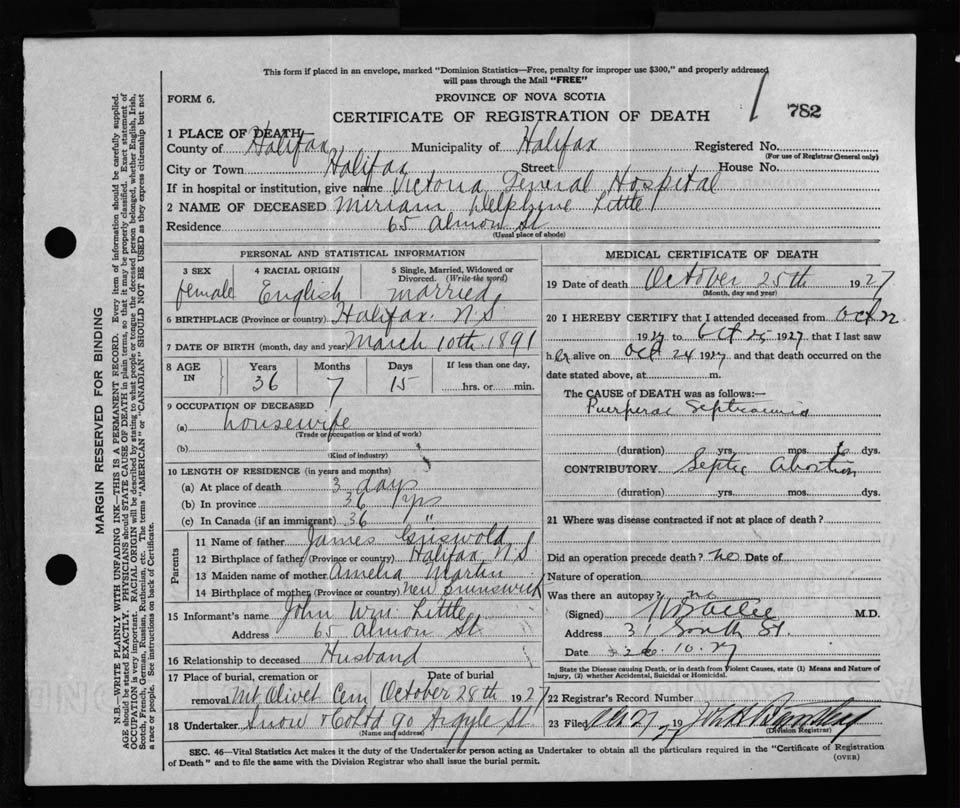 This form if placed in an envelope, marked "Dominion Statistics—Free, penalty for improper use $300," and properly addressed
will pass through the Mail "FREE"
FORM 6.
PROVINCE OF NOVA SCOTIA
782
CERTIFICATE OF REGISTRATION OF DEATH
1 PLACE OF DEATH
County of Halifax Municipality of Halifax Registered No.
(For use of Registrar General only)
City or Town Halifax Street House No.
If in hospital or institution, give name Victoria General Hospital
2 NAME OF DECEASED Miriam Delphine Little
Residence 65 Almon St
(Usual place of abode)
PERSONAL AND STATISTICAL INFORMATION
3 SEX 4 RACIAL ORIGIN 5 Single, Married, Widowed or Divorced. (Write the word)
female English married
6 BIRTHPLACE (Province or country) Halifax. N.S
7 DATE OF BIRTH (month, day and year) March 10th 1891
8 AGE IN Years Months Days If less than one day,
36 7 15 hrs. or min.
9 OCCUPATION OF DECEASED
(a) housewife
(Trade or occupation or kind of work)
(b)
(Kind of industry)
10 LENGTH OF RESIDENCE (in years and months)
(a) At place of death 3 days
(b) In province 36 yrs
(c) In Canada (if an immigrant) 36 "
Parents
11 Name of father James Griswold
12 Birthplace of father (Province or country) Halifax N S
13 Maiden name of mother Amelia Martin
14 Birthplace of mother (Province or country) New Brunswick
15 Informant's name John Wm. Little
Address 65 Almon St.
16 Relationship to deceased Husband
17 Place of burial, cremation or Date of burial
removal Mt Olivet Cem October 28th 1927
18 Undertaker Snow & Co Ltd 90 Argyle St
(Name and address)
MEDICAL CERTIFICATE OF DEATH
19 Date of death October 25th 1927
(Month, day and year)
20 I HEREBY CERTIFY that I attended deceased from Oct 22
1927 to Oct 25 1927 that I last saw
her alive on Oct 24 1927 and that death occurred on the
date stated above, at m.
The CAUSE OF DEATH was as follows:—
Puerperal Septicaemia
(duration) yrs. mos. dys.
CONTRIBUTORY Septic Abortion
(duration) yrs. mos. dys.
21 Where was disease contracted if not at place of death?
Did an operation precede death? no Date of
Nature of operation
Was there an autopsy? no
(Signed) M.D.
Address 31 South St.
Date 26.10.27
State the Disease causing Death, or in death from Violent Causes, state (1) Means and Nature of
Injury, (2) whether Accidental, Suicidal or Homicidal.
22 Registrar's Record Number
23 Filed Oct 27 1927
(Division Registrar)
SEC. 46—Vital Statistics Act makes it the duty of the Undertaker or person acting as Undertaker to obtain all the particulars required in the "Certificate of Registration
of Death" and to file the same with the Division Registrar who shall issue the burial permit.
(OVER)
MARGIN RESERVED FOR BINDING
N.B.—WRITE PLAINLY WITH UNFADING INK—THIS IS A PERMANENT RECORD. Every item of information should be carefully supplied.
AGE should be stated EXACTLY. PHYSICIANS should STATE CAUSE OF DEATH in plain terms, so that it may be properly classified. Exact statement of
OCCUPATION is very important. RACIAL ORIGIN will be described by stating to what people or tongue the deceased person belonged, whether English, Irish,
Scotch, French, German, Russian, Ruthenian, etc. The terms "AMERICAN" or "CANADIAN" SHOULD NOT BE USED as they express citizenship but not
a race or people. See instructions on back of Certificate.